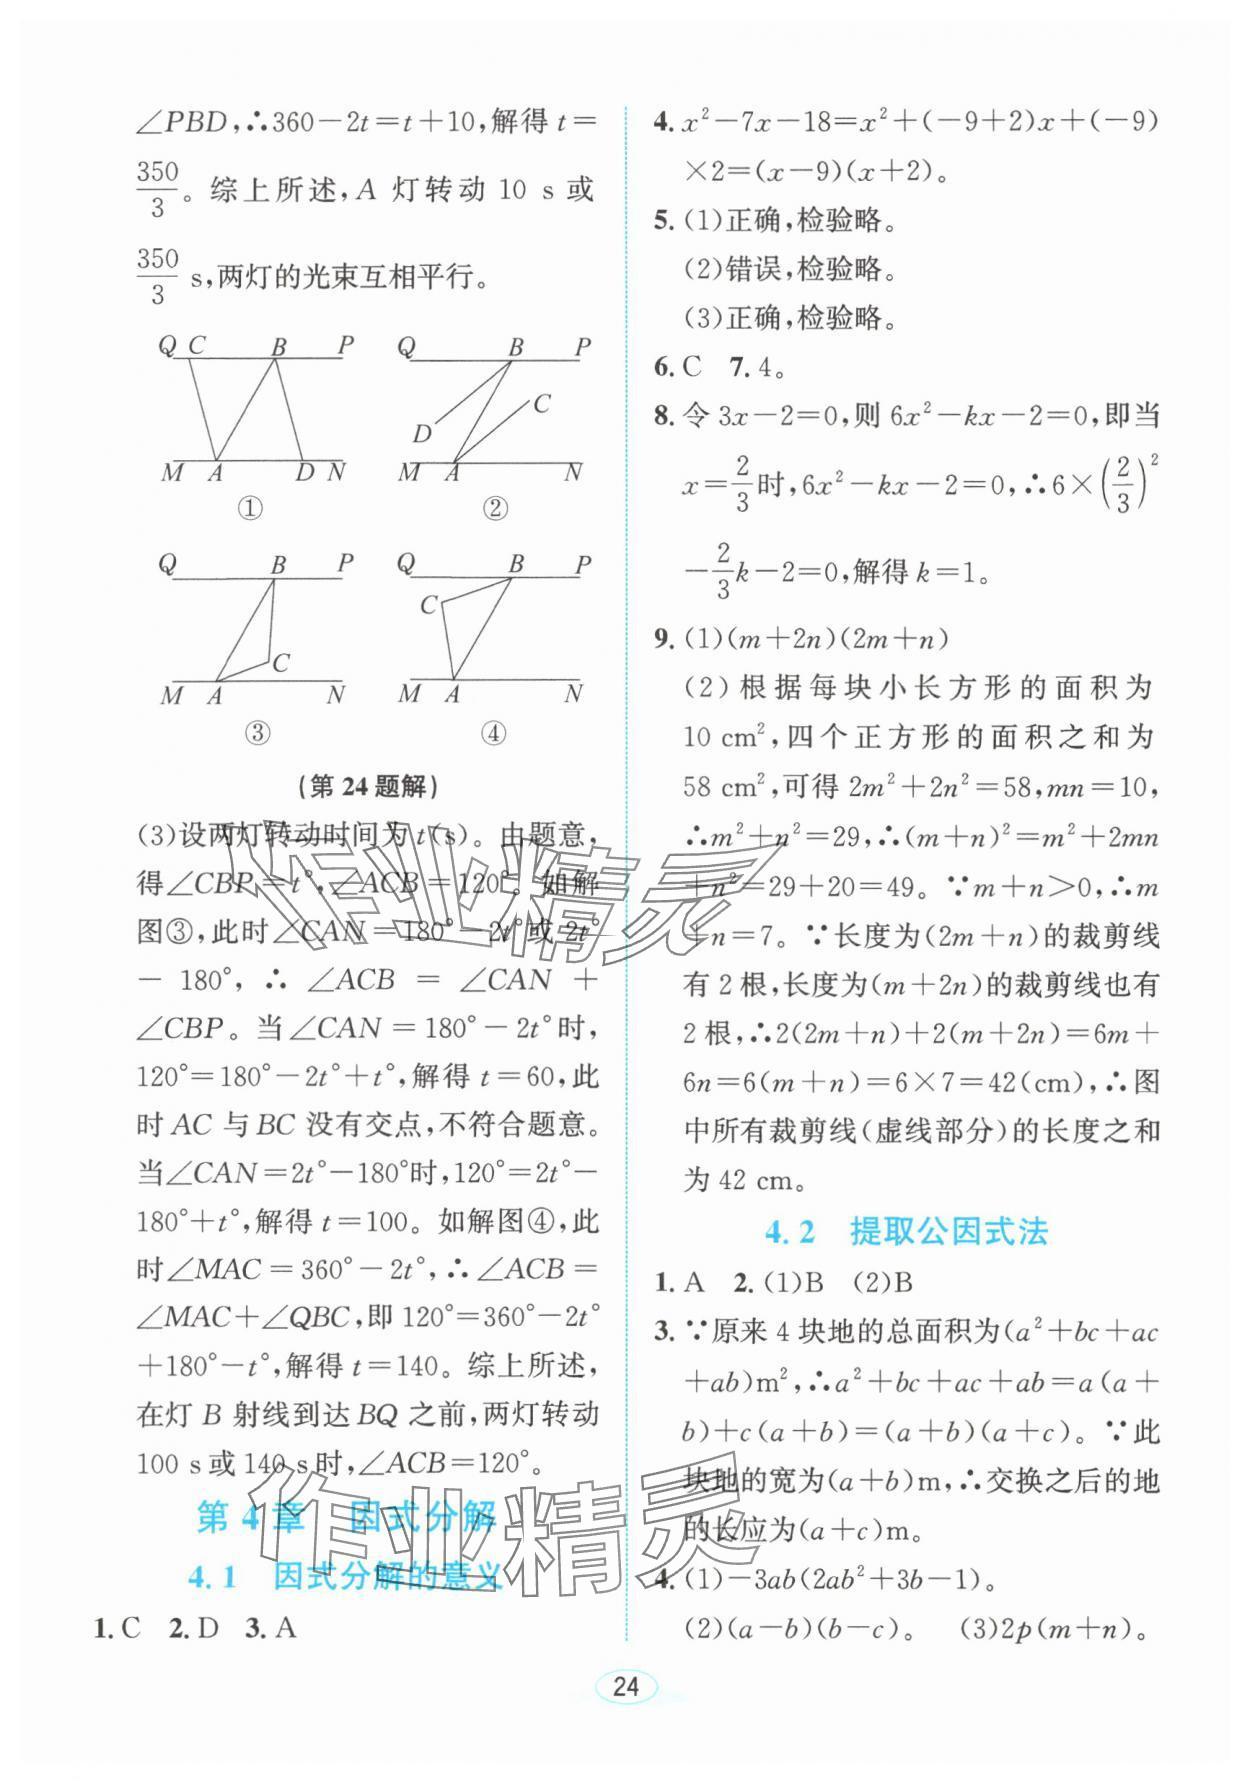 ∠PBD,∴360－2t＝t＋10,解得 t＝
350/3。综上所述,A 灯转动 10 s 或
350/3 s,两灯的光束互相平行。
Q C B P
M A D N
①
Q B P
D C
M A N
②
Q B P
C
M A N
③
Q B P
C
M A N
④
(第 24 题解)
(3)设两灯转动时间为 t(s)。由题意,
得∠CBP＝t°,∠ACB＝120°。如解
图③,此时∠CAN＝180°－2t°或 2t°
－180°,∴∠ACB＝∠CAN＋
∠CBP。当∠CAN＝180°－2t°时,
120°＝180°－2t°＋t°,解得 t＝60,此
时 AC 与 BC 没有交点,不符合题意。
当∠CAN＝2t°－180°时,120°＝2t°－
180°＋t°,解得 t＝100。如解图④,此
时∠MAC＝360°－2t°,∴∠ACB＝
∠MAC＋∠QBC,即 120°＝360°－2t°
＋180°－t°,解得 t＝140。综上所述,
在灯 B 射线到达 BQ 之前,两灯转动
100 s 或 140 s 时,∠ACB＝120°。
第 4 章 因式分解
4.1 因式分解的意义
1. C 2. D 3. A
4. x²－7x－18＝x²＋(－9＋2)x＋(－9)
×2＝(x－9)(x＋2)。
5. (1)正确,检验略。
(2)错误,检验略。
(3)正确,检验略。
6. C 7. 4。
8. 令 3x－2＝0,则 6x²－kx－2＝0,即当
x＝2/3时,6x²－kx－2＝0,∴6×(2/3)²
－2/3k－2＝0,解得 k＝1。
9. (1)(m＋2n)(2m＋n)
(2)根据每块小长方形的面积为
10 cm²,四个正方形的面积之和为
58 cm²,可得 2m²＋2n²＝58,mn＝10,
∴m²＋n²＝29,∴(m＋n)²＝m²＋2mn
＋n²＝29＋20＝49。∵m＋n＞0,∴m
＋n＝7。∵长度为(2m＋n)的裁剪线
有 2 根,长度为(m＋2n)的裁剪线也有
2 根,∴2(2m＋n)＋2(m＋2n)＝6m＋
6n＝6(m＋n)＝6×7＝42(cm),∴图
中所有裁剪线(虚线部分)的长度之和
为 42 cm。
4.2 提取公因式法
1. A 2. (1)B (2)B
3. ∵原来 4 块地的总面积为(a²＋bc＋ac
＋ab)m²,∴a²＋bc＋ac＋ab＝a(a＋
b)＋c(a＋b)＝(a＋b)(a＋c)。∵此
块地的宽为(a＋b)m,∴交换之后的地
的长应为(a＋c)m。
4. (1)－3ab(2ab²＋3b－1)。
(2)(a－b)(b－c)。 (3)2p(m＋n)。
24
作业精灵
作业精灵